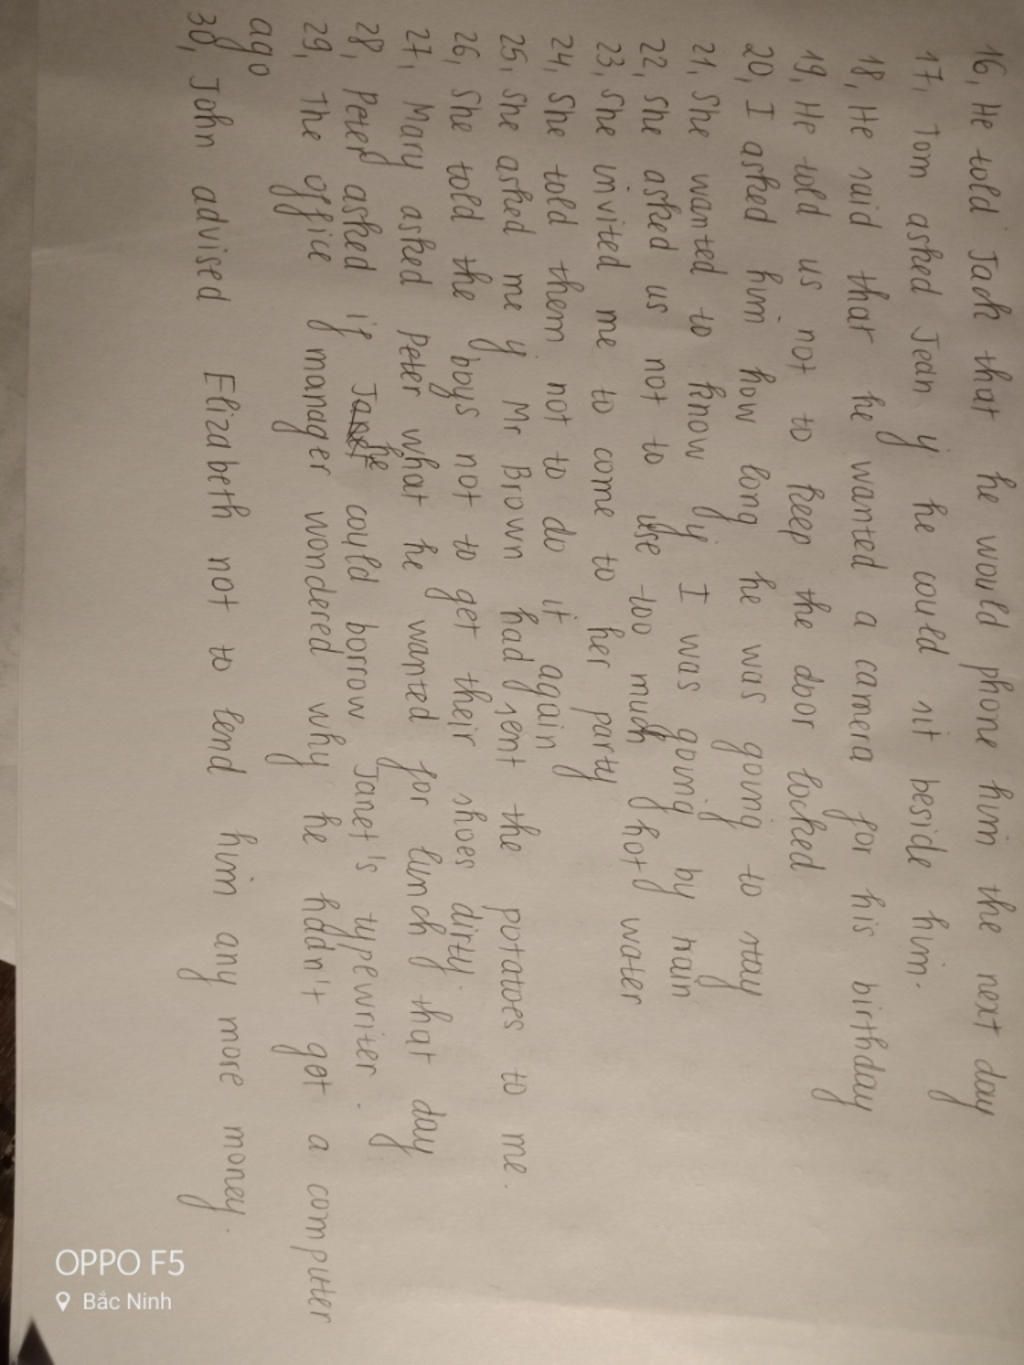 16, He told Jack that he would phone him the next day
17, Tom asked Jean if he could sit beside him.
18, He said that he wanted a camera for his birthday
19, He told us not to keep the door locked
20, I asked him how long he was going to stay
21, She wanted to know if I was going by train
22, She asked us not to use too much hot water
23, She invited me to come to her party
24, She told them not to do it again
25, She asked me if Mr Brown had sent the potatoes to me.
26, She told the boys not to get their shoes dirty.
27, Mary asked Peter what he wanted for lunch that day
28, Peter asked if he could borrow Janet's typewriter.
29, The office manager wondered why he hadn't got a computer
ago
30, John advised Elizabeth not to lend him any more money.
OPPO F5
Bắc Ninh